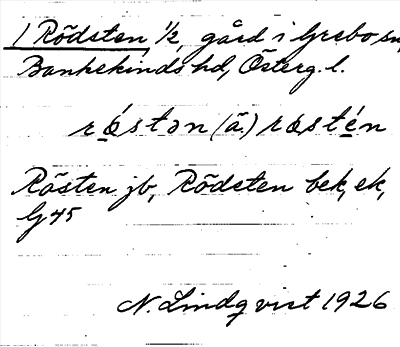 1 Rödsten 1/2, gård i Grebo sn,
Bankekinds hd, Österg. l.
rǿstən (ä.) røstén
Rösten jb, Rödsten bek, ek,
G 45
N. Lindqvist 1926